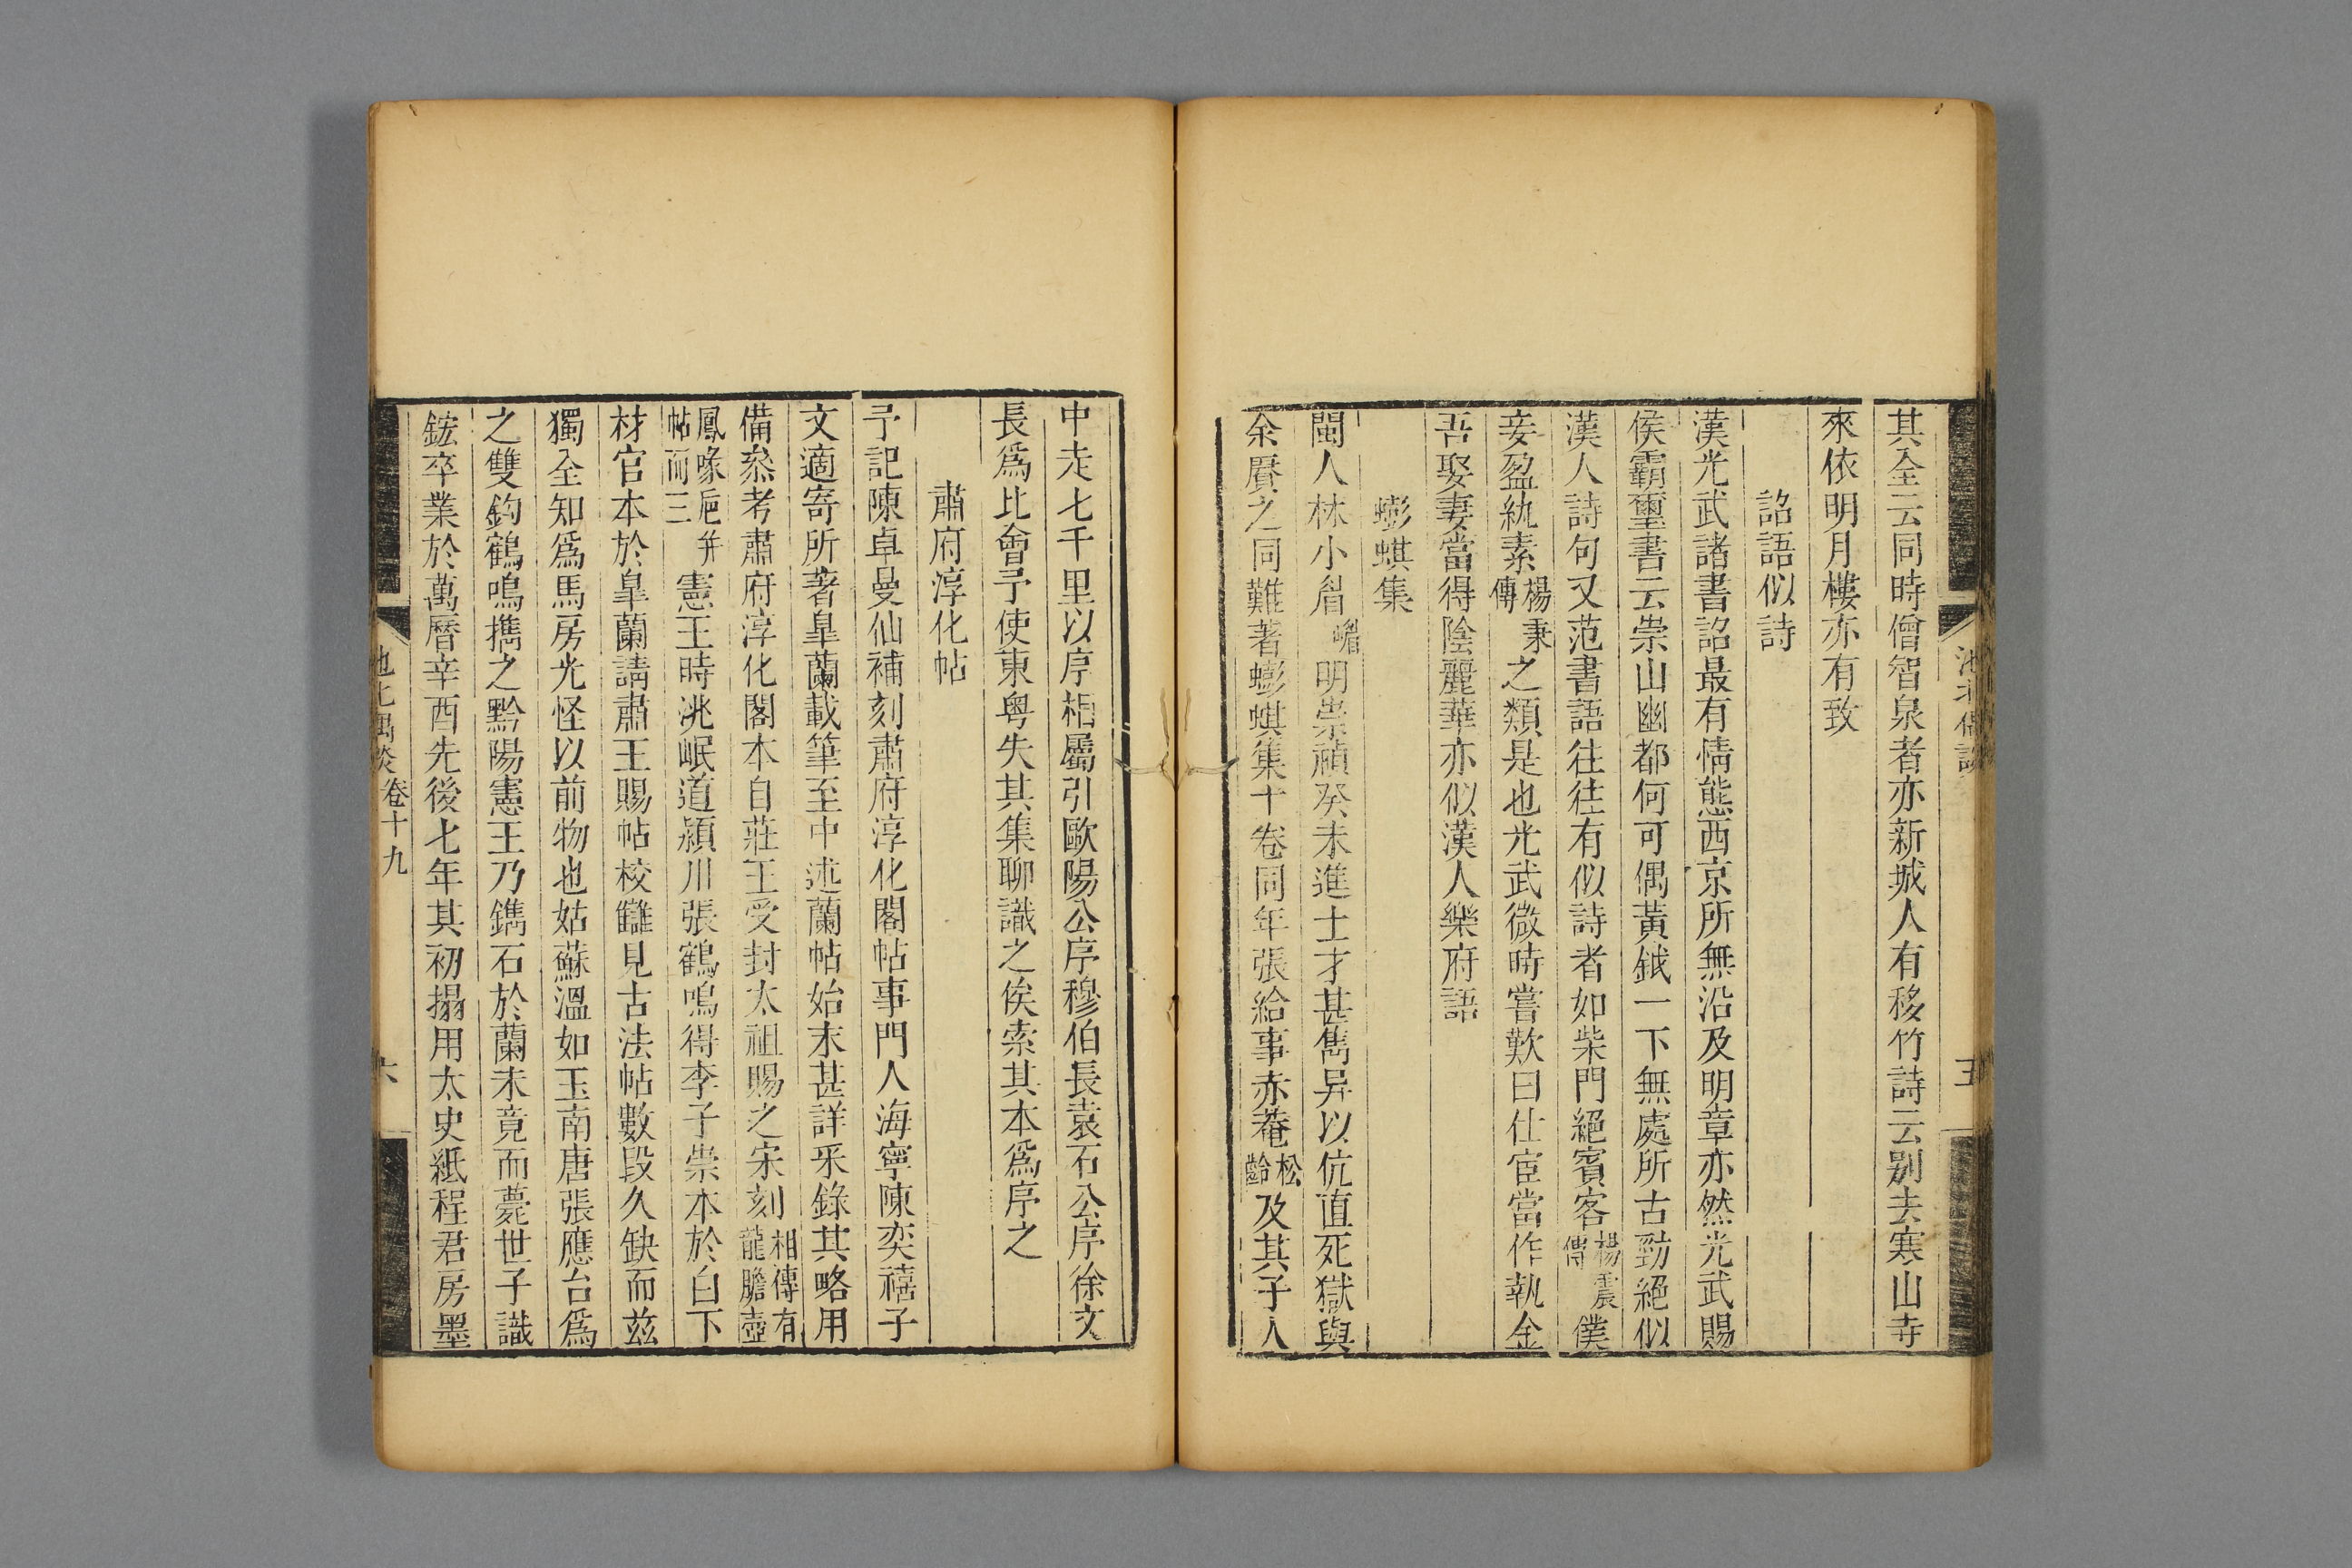 池北偶談
五
其全云同時僧智泉者亦新城人有移竹詩云别去寒山寺
來依明月樓亦有致
詔語似詩
漢光武諸書詔最有情態西京所無沿及明章亦然光武賜
侯霸璽書云崇山幽都何可偶黃鉞一下無處所古勁絕似
漢人詩句又范書語往往有似詩者如柴門絕賓客楊震傳僕
妾盈紈素楊秉傳之類是也光武微時嘗歎曰仕宦當作執金
吾娶妻當得陰麗華亦似漢人樂府語
蟛蜞集
閩人林小眉嵋明崇禎癸未進士才甚雋异以伉直死獄與
余曆之同難著蟛蜞集十卷同年張給事赤菴松齡及其子人
中走七千里以序相屬引歐陽公序穆伯長袁石公序徐文
長爲比會予使東粵失其集聊識之俟索其本爲序之
肅府淳化帖
予記陳卓曼仙補刻肅府淳化閣帖事門人海寧陳奕禧子
文適寄所著臯蘭載筆至中述蘭帖始末甚詳采錄其略用
備叅考肅府淳化閣本自莊王受封太祖賜之宋刻相傳有龍膽壺
鳳喙巵并帖而三憲王時洮岷道潁川張鶴鳴得李子崇本於白下
材官本於臯蘭請肅王賜帖校讎見古法帖數段久缺而兹
獨全知爲馬房光怪以前物也姑蘇溫如玉南唐張應台爲
之雙鈎鶴鳴攜之黔陽憲王乃鐫石於蘭未竟而薨世子識
鋐卒業於萬曆辛酉先後七年其初搨用太史紙程君房墨
池北偶談
卷十九
六